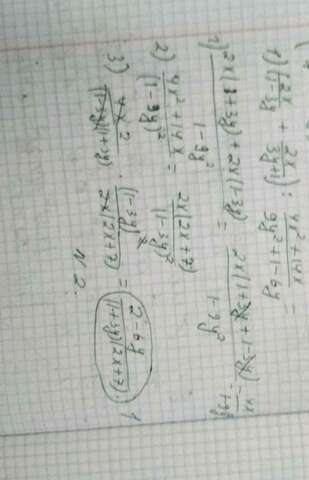 1) (2x/(1-3y) + 2x/(3y+1)) : (4x²+14x)/(9y²+1-6y) =
1) (2x(1+3y)+2x(1-3y))/(1-9y²) = (2x(1+3y+1-3y))/(1-9y²) = 4x/(1-9y²)
2) (4x²+14x)/(1-3y)² = (2x(2x+7))/(1-3y)²
3) (4x 2)/((1-3y)(1+3y)) · (1-3y)²/(2x(2x+7)) = (2-6y)/((1+3y)(2x+7)).
N 2.